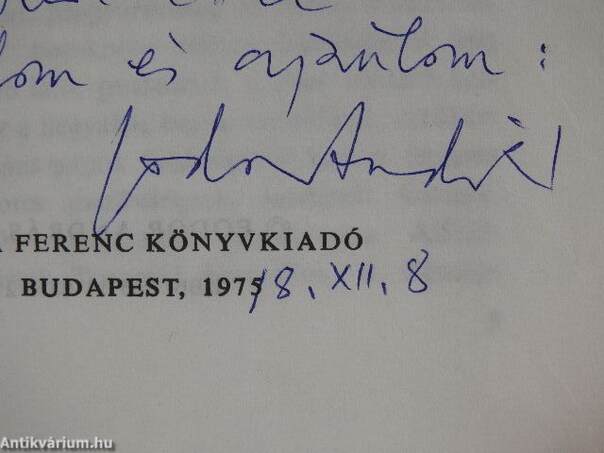 lom és ajánlom:
Fodor András
A FERENC KÖNYVKIADÓ
BUDAPEST, 1975/8. XII. 8
Antikvárium.hu